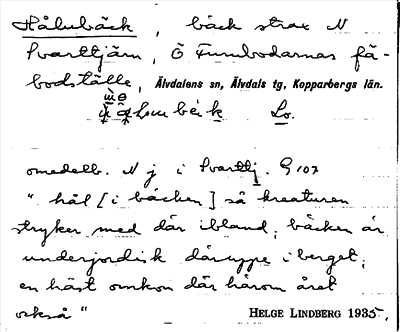 Hålubäck, bäck strax N
Svarttjärn, Ö Furubodarnas fä-
bodställe, Älvdalens sn, Älvdals tg, Kopparbergs län.
Lo.
omedelb. N j i Svarttj. G 107
" hål [i bäcken] så kreaturen
stryker med där ibland; bäcken är
underjordisk däruppe i berget;
en häst omkom där härom året
också" HELGE LINDBERG 1935.